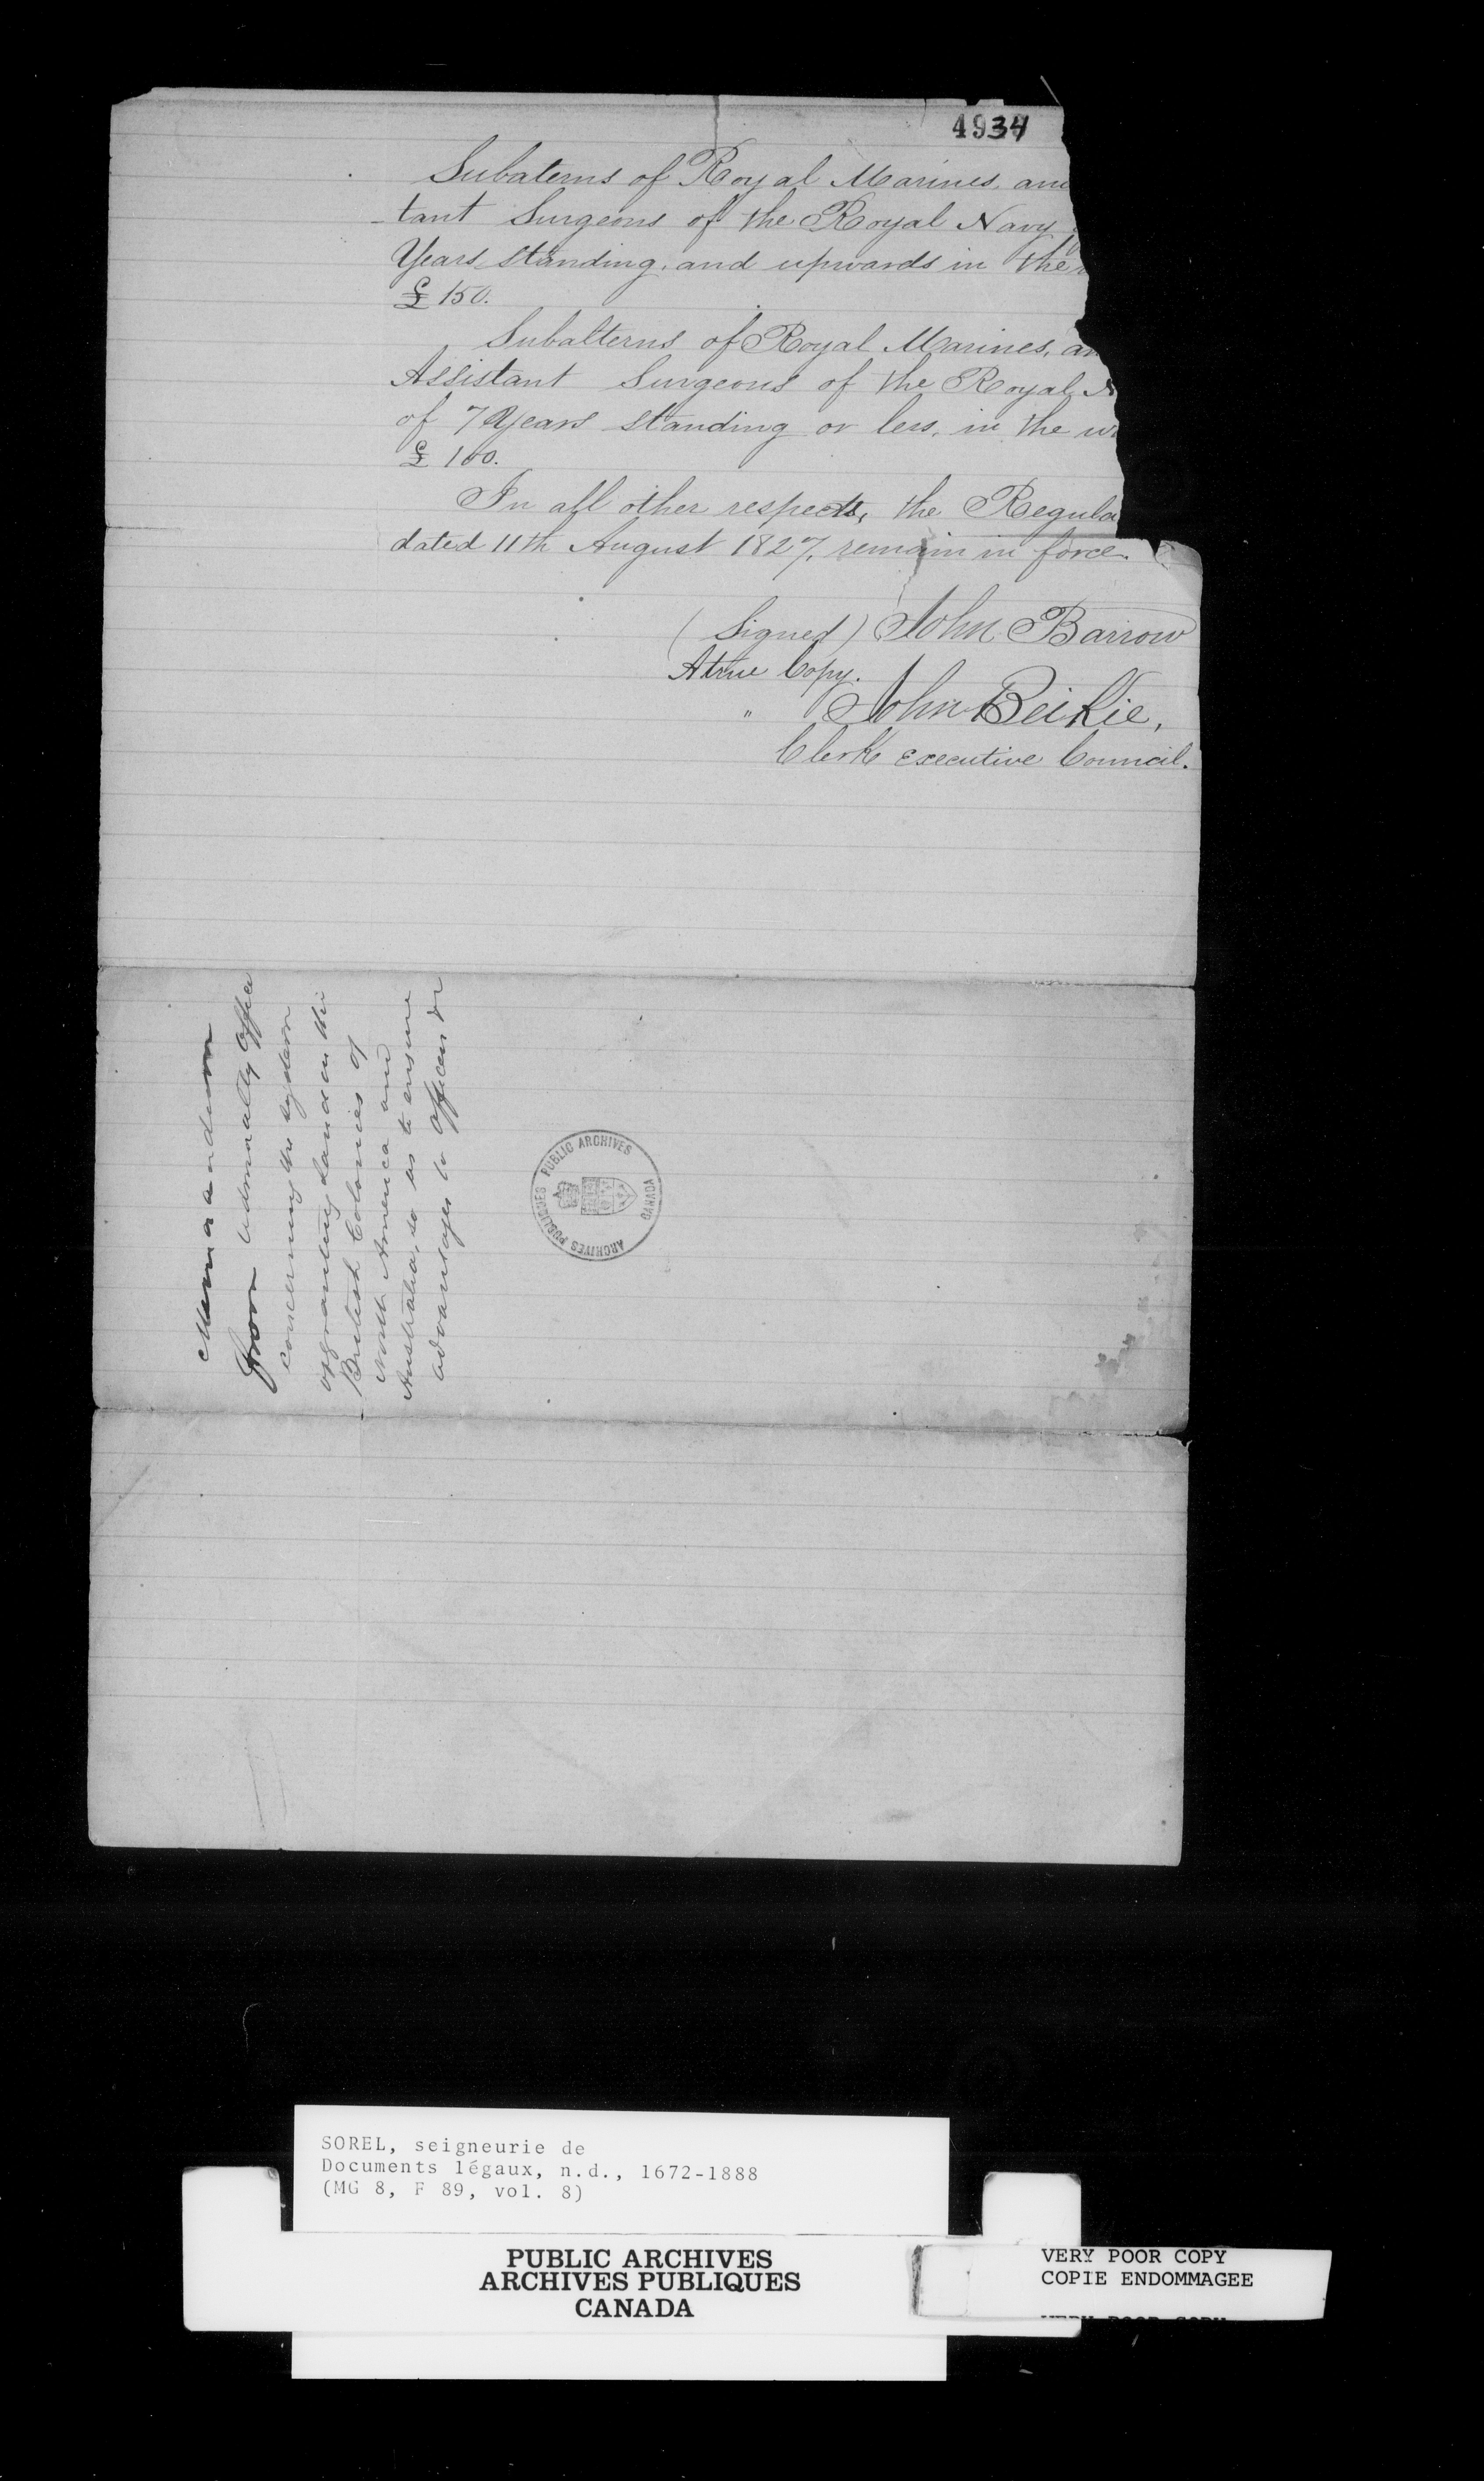 4934
Subaterns of Royal Marines, and
tant Surgeons of the Royal Navy
Years standing, and upwards in the
£150.
Subalterns of Royal Marines, an
Assistant Surgeons of the Royal N
of 7 Years standing or less, in the
£100.
In all other respects, the Regula
dated 11th August 1827, remain in force.
(Signed) John Barrow
A true Copy.
" John Beikie,
Clerk Executive Council.
Memorandum
from Admiralty Office
concerning the system
of granting lands in the
British Colonies of
North America and
Australia, so as to ensure
advantages to Officers &c
PUBLIC ARCHIVES
CANADA
ARCHIVES PUBLIQUES
SOREL, seigneurie de
Documents légaux, n.d., 1672-1888
(MG 8, F 89, vol. 8)
PUBLIC ARCHIVES
ARCHIVES PUBLIQUES
CANADA
VERY POOR COPY
COPIE ENDOMMAGEE
VERY POOR COPY